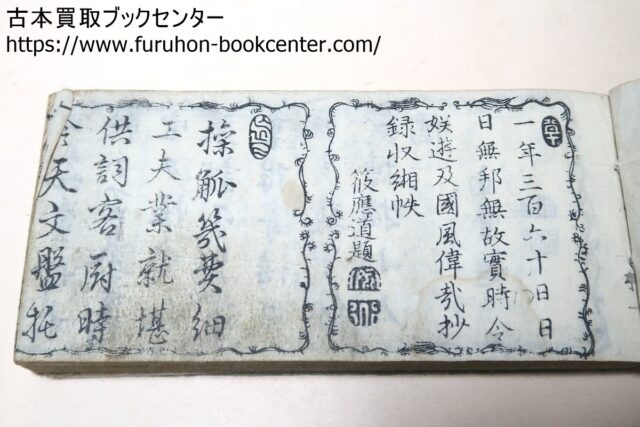 古本買取ブックセンター
https://www.furuhon-bookcenter.com/
一年三百六十日日
日無邦無故實時令
娯遊及國風偉哉抄
録収緗帙
筱應道題
操觚幾費細
工夫業就堪
供詞客厨時
令天文盤托